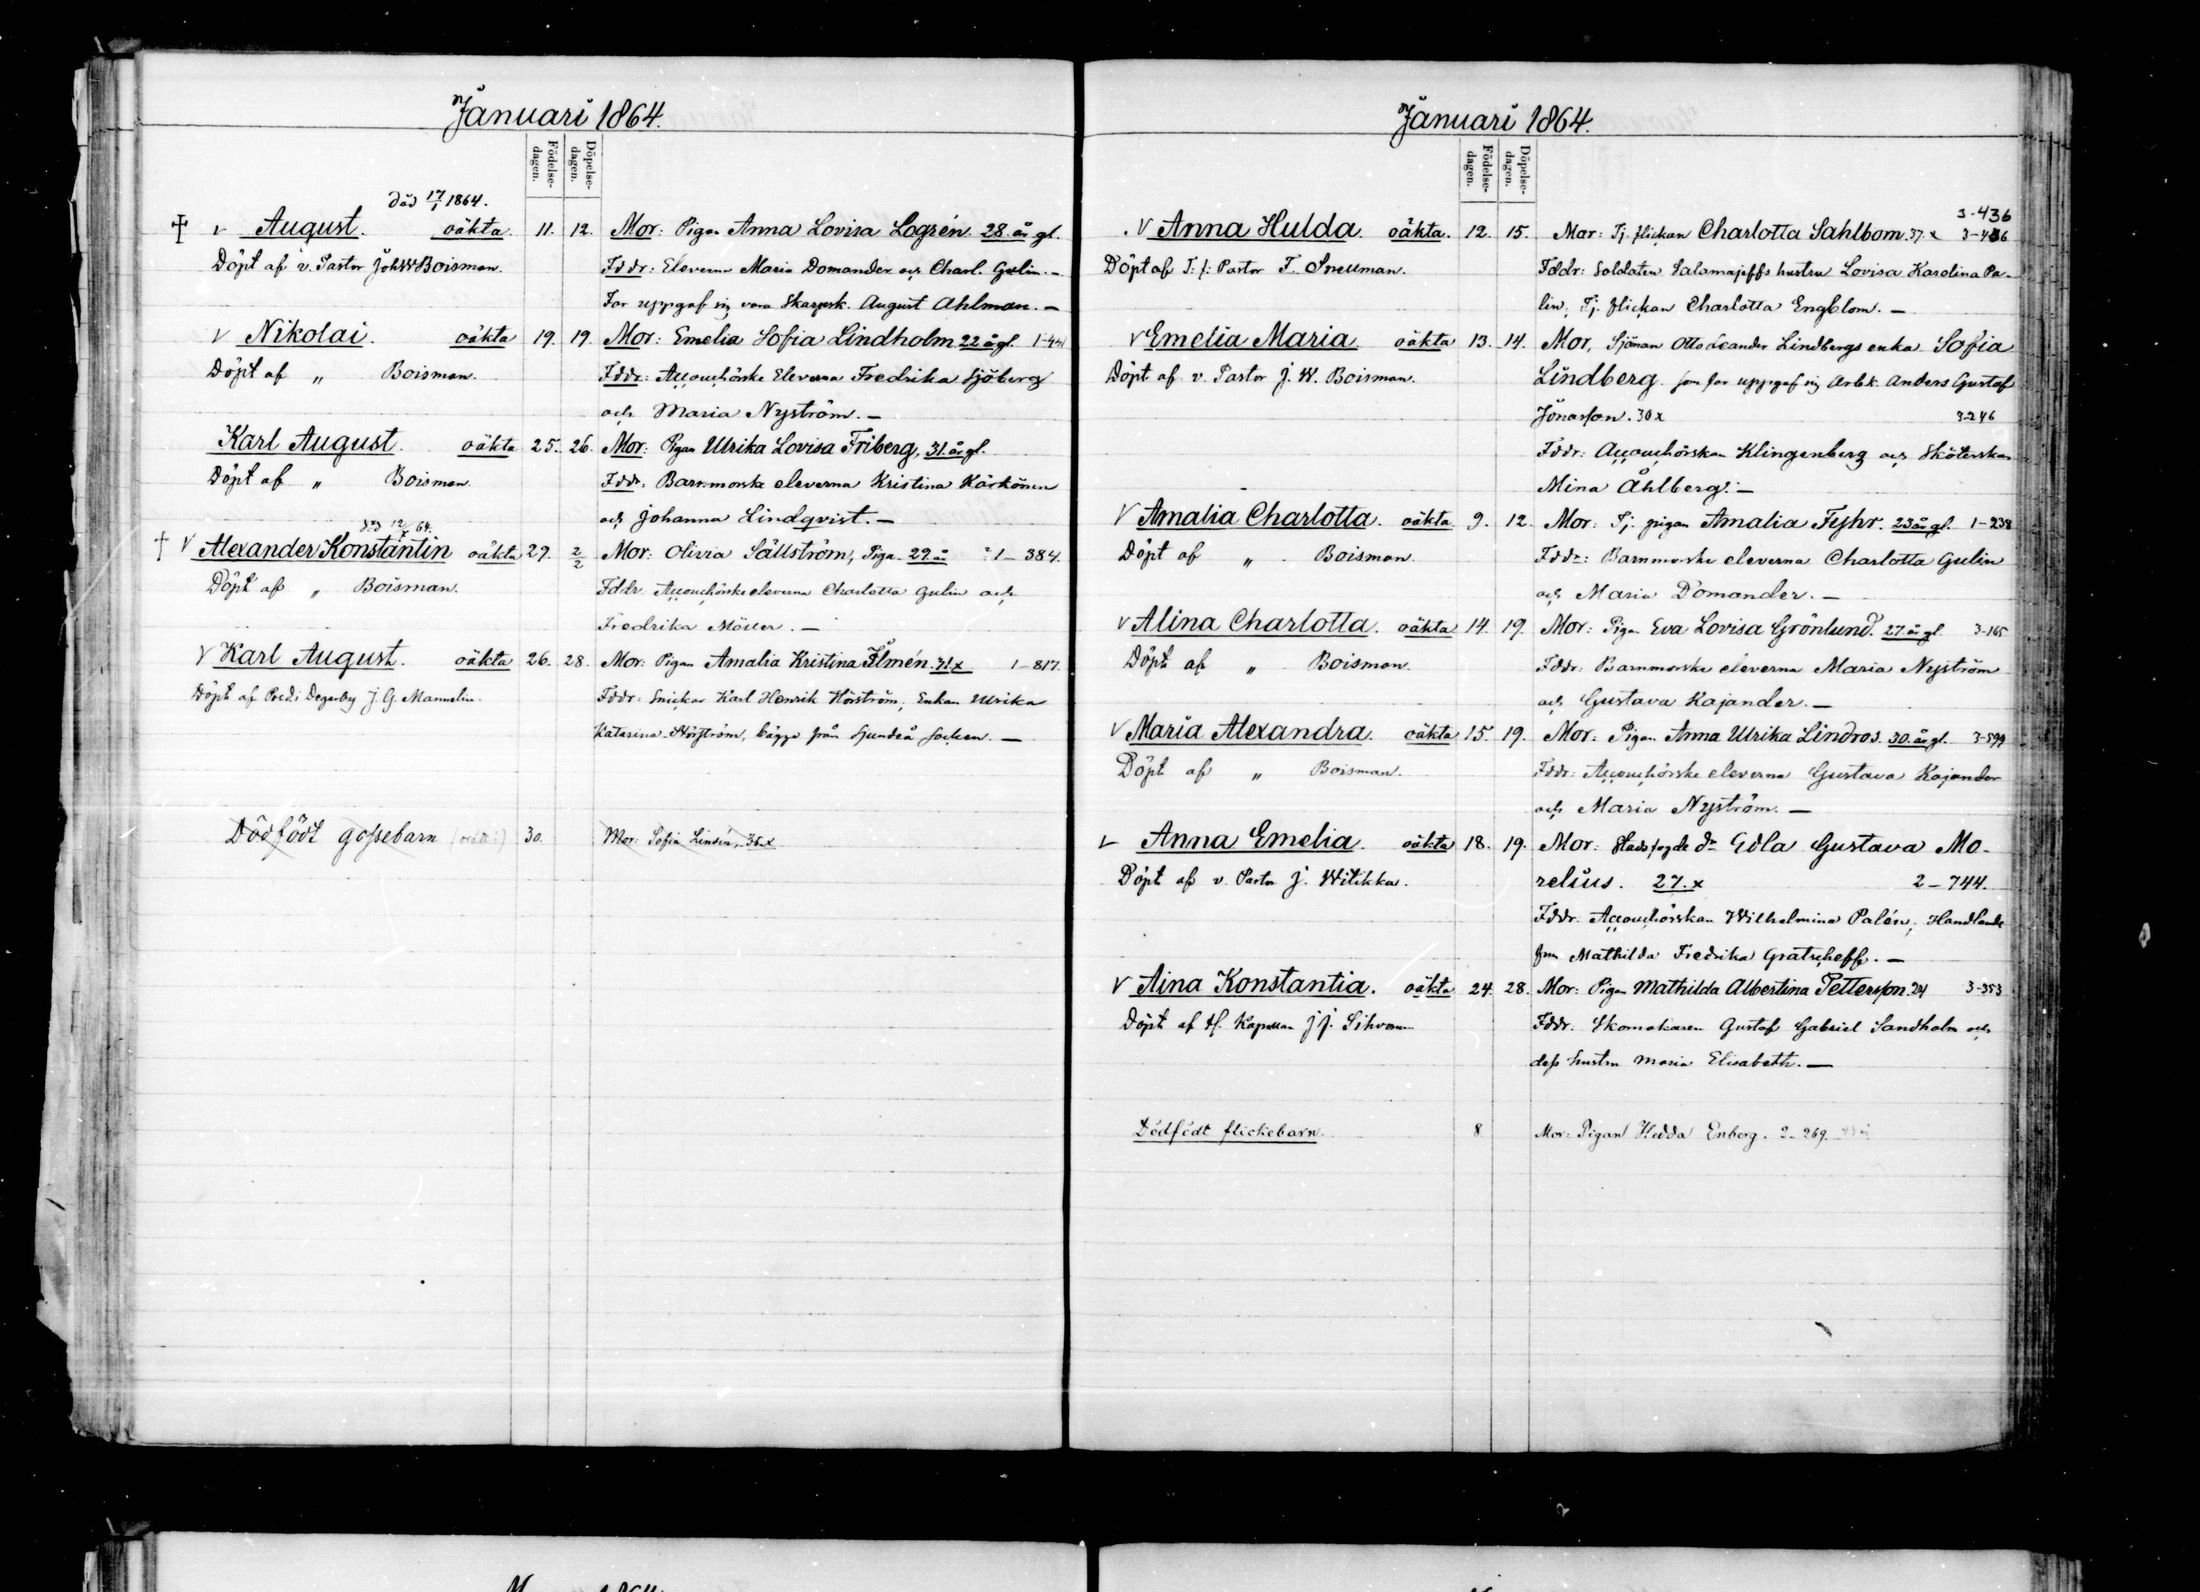 Januari 1864.
Födelse-dagen.
Döpelse-dagen.
Död 17/1 1864.
August. oäkta. 11. 12. Mor: Pigan Anna Lovisa Logrén. 28 år gl.
Döpt af v. Pastor Joh W Boisman. Fddr: Eleverna Maria Domander och Charl. Gulin. —
Far uppgaf sig vara Skarpsk. August Ahlman. —
Nikolai. oäkta 19. 19. Mor: Emelia Sofia Lindholm 22 år gl. 1-44
Döpt af " Boisman. Fddr: Accouchörske Eleverna Fredrika Sjöberg
och Maria Nyström. —
Karl August. oäkta 25. 26. Mor: Pigan Ulrika Lovisa Friberg, 31 år gl.
Döpt af " Boisman. Fddr: Barnmorske eleverna Kristina Kärkönen
och Johanna Lindqvist. —
död 12/ 64.
Alexander Konstantin oäkta 27. 2/2 Mor: Olivia Sällström, Piga 22 år 1-384.
Döpt af " Boisman. Fddr. Accouchörske eleverna Charlotta Gulin och
Fredrika Möller. —
Karl August. oäkta 26. 28. Mor: Pigan Amalia Kristina Ilmén. 1-817.
Döpt af Pred. i Degerby J. G. Mannelin. Fddr: Snickar Karl Henrik Hörström, Enkan Ulrika
Katarina Hörström, bägge från Sjundeå socken. —
Dödfödt gossebarn 30. Mor: Sofia Lindén, 35 x
Januari 1864.
Födelse-dagen.
Döpelse-dagen.
3-436
Anna Hulda. oäkta. 12. 15. Mor: Tj. flickan Charlotta Sahlbom. 37. x 3-436
Döpt af T. f. Pastor F. Snellman. Fddr: Soldaten Salamajeffs hustru Lovisa Karolina Pa-
lin, Tj. flickan Charlotta Engblom. —
Emelia Maria. oäkta 13. 14. Mor, Sjöman Otto Leander Lindbergs enka Sofia
Döpt af v. Pastor J. W. Boisman. Lindberg. som far uppgaf sig Arbk. Anders Gustaf
Jönasson. 30 x 3-246
Fddr: Accouchörskan Klingenberg och Sköterskan
Mina Åhlberg. —
Amalia Charlotta. oäkta 9. 12. Mor: Tj. pigan Amalia Fyhr. 23 år gl. 1-238
Döpt af " Boisman. Fddr: Barnmorske eleverna Charlotta Gulin
och Maria Domander. —
Alina Charlotta. oäkta 14. 19. Mor: Pigan Eva Lovisa Grönlund. 27 år gl. 3-165
Döpt af " Boisman. Fddr: Barnmorske eleverna Maria Nyström
och Gustava Kajander. —
Maria Alexandra. oäkta 15. 19. Mor: Pigan Anna Ulrika Lindros. 30 år gl. 3-599
Döpt af " Boisman. Fddr: Accouchörske eleverna Gustava Kajander
och Maria Nyström. —
Anna Emelia. oäkta 18. 19. Mor: Stadsfogde dr Edla Gustava Mo-
Döpt af v. Pastor J. Witikka. relius. 27. x 2-744.
Fddr: Accouchörskan Wilhelmina Palén, Handlande
frun Mathilda Fredrika Gratscheff. —
Aina Konstantia. oäkta 24. 28. Mor: Pigan Mathilda Albertina Pettersson. 24 3-353
Döpt af H. Kapellan J. J. Sihvonen Fddr. Skomakaren Gustaf Gabriel Sandholm och
dess hustru Maria Elisabeth. —
Dödfödt flickebarn. 8 Mor: Pigan Hedda Enberg. 2-269